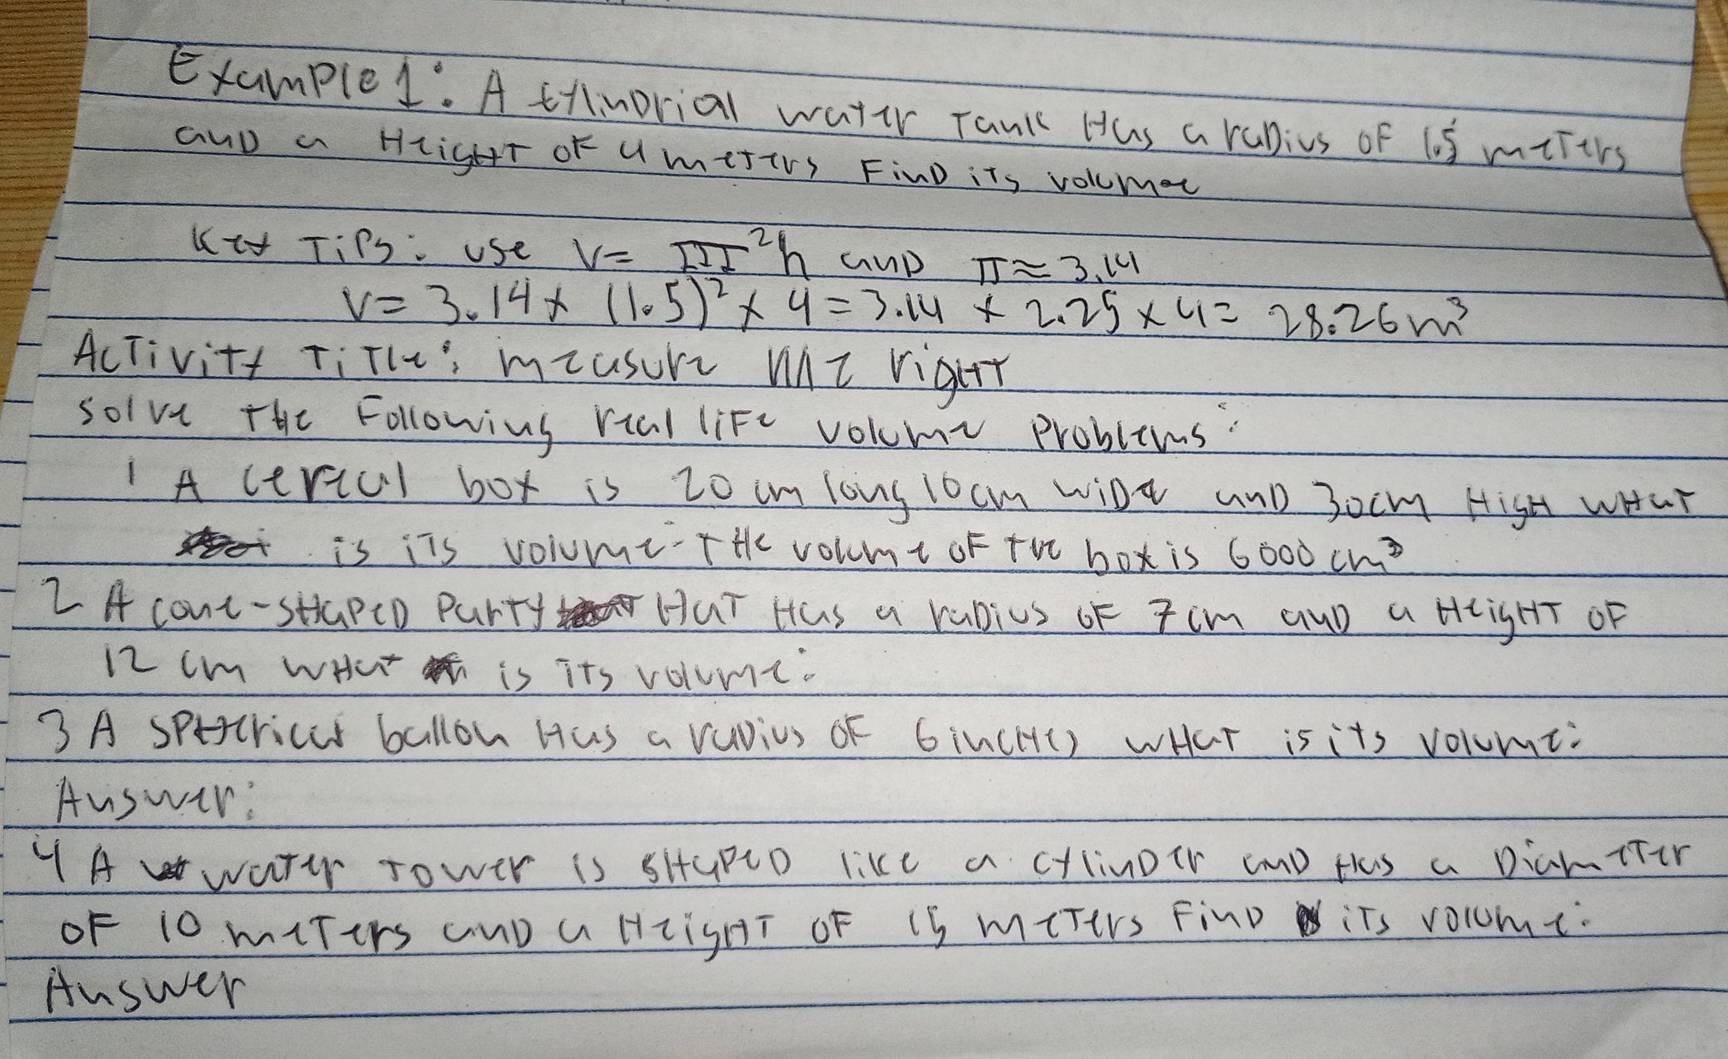 Example 1: A cylindrial water Tank Has a radius of 1.5 meters
and a Height of 4 meters Find its volume
Key Tips: use V= πr²h and π≈3.14
V= 3.14 x (1.5)² x 4 = 3.14 x 2.25 x 4 = 28.26 m³
Activity Title: measure Me right
solve the Following real life volume Problems:
1 A cereal box is 20 cm long 10 cm wide and 30cm High what
is its volume. The volume of the box is 6000 cm³
2 A cone-shaped Party Hat Has a radius of 7 cm and a Height of
12 cm what is its volume:
3 A spherical ballon Has a radius of 6 inches what is its volume:
Answer:
4 A water Tower is shaped like a cylinder and Has a Diameter
of 10 meters and a Height of 15 meters Find its volume:
Answer